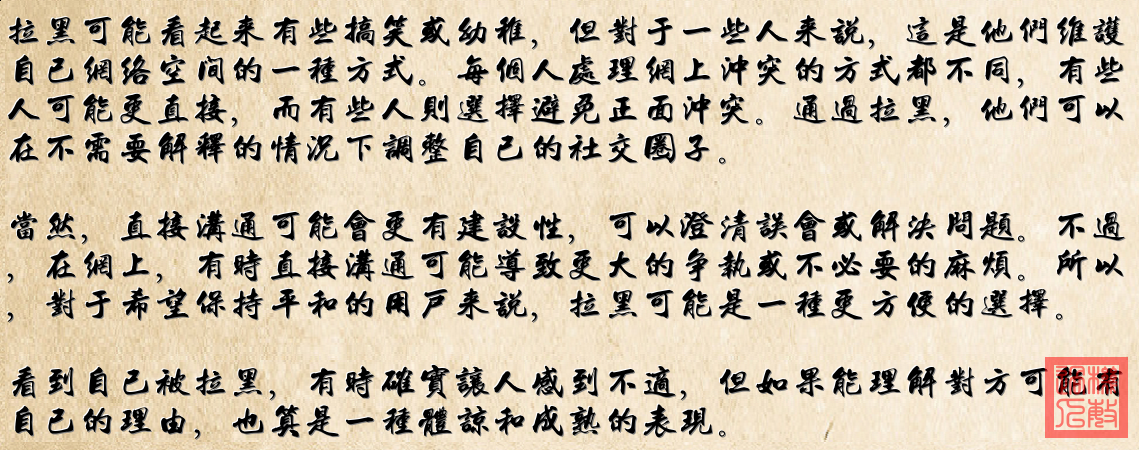 拉黑可能看起来有些搞笑或幼稚，但對于一些人来説，這是他們維護
自己網絡空间的一種方式。每個人處理網上沖突的方式都不同，有些
人可能更直接，而有些人則選擇避免正面沖突。通過拉黑，他們可以
在不需要解釋的情況下調整自己的社交圈子。
當然，直接溝通可能會更有建設性，可以澄清誤會或解決問題。不過
，在網上，有時直接溝通可能導致更大的争執或不必要的麻煩。所以
，對于希望保持平和的用戸来説，拉黑可能是一種更方便的選擇。
看到自己被拉黑，有時確實讓人感到不適，但如果能理解對方可能有
自己的理由，也算是一種體諒和成熟的表現。